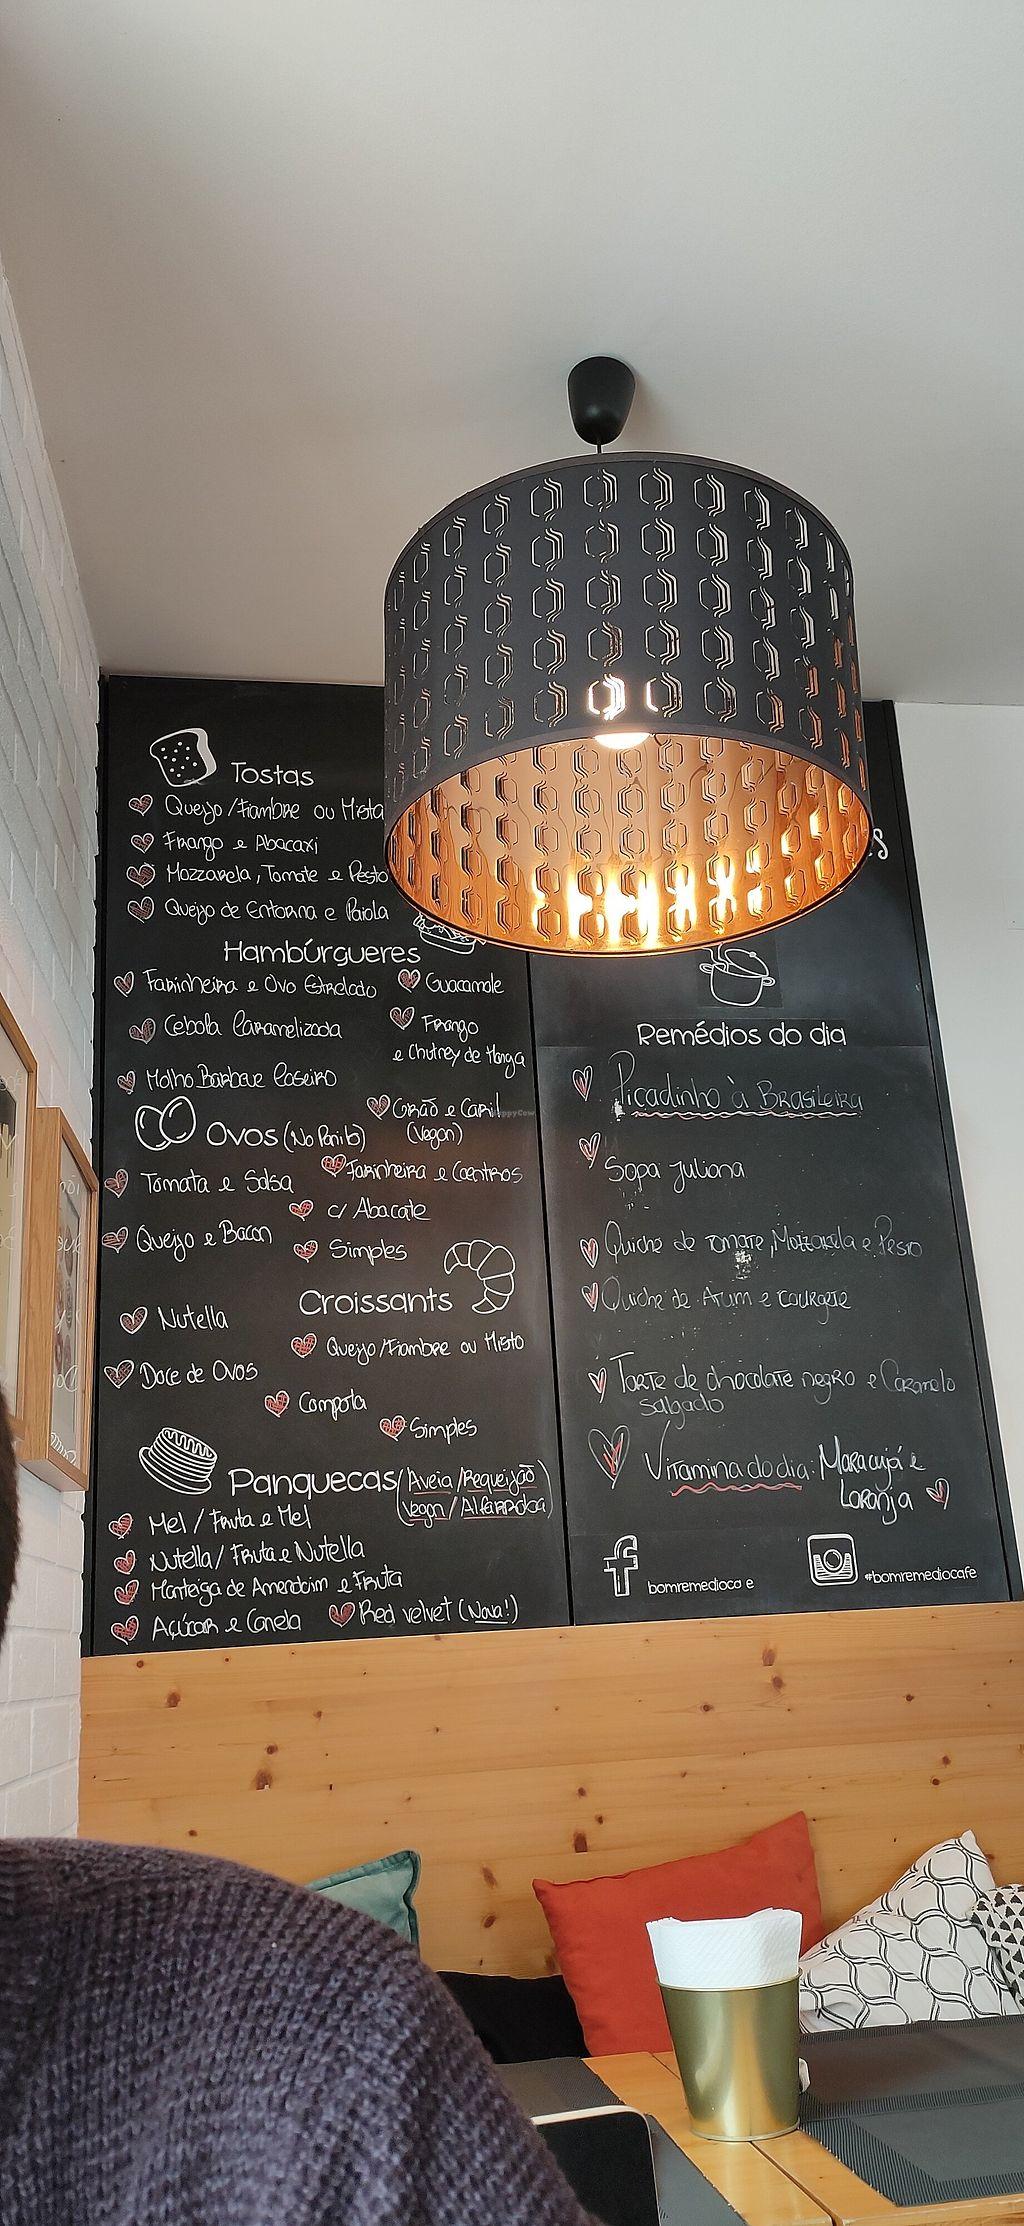 Tostas
Queijo/Fiambre ou Mista
Frango e Abacaxi
Mozzarela, Tomate e Pesto
Queijo de Entorna e Paiola
Hambúrgueres
Farinheira e Ovo Estrelado
Guacamole
Cebola Caramelizada
Frango
e Chutney de Manga
Molho Barbecue Caseiro
Grão e Caril
(Vegan)
Ovos (No Panito)
Tomata e Salsa
Farinheira e Coentros
c/ Abacate
Queijo e Bacon
Simples
Croissants
Nutella
Queijo/Fiambre ou Misto
Doce de Ovos
Compota
Simples
Panquecas (Aveia/Requeijão)
(Vegan/Alfarroba)
Mel / Fruta e Mel
Nutella/ Fruta e Nutella
Manteiga de Amendoim e Fruta
Açúcar e Canela
Red velvet (Nova!)
Remédios do dia
Picadinho à Brasileira
Sopa Juliana
Quiche de Tomate, Mozzarela e Pesto
Quiche de Atum e courgete
Tarte de chocolate negro e Caramelo
Salgado
Vitamina do dia: Maracujá e
Laranja
f bomremedioco e
#bomremediocafe
HappyCow